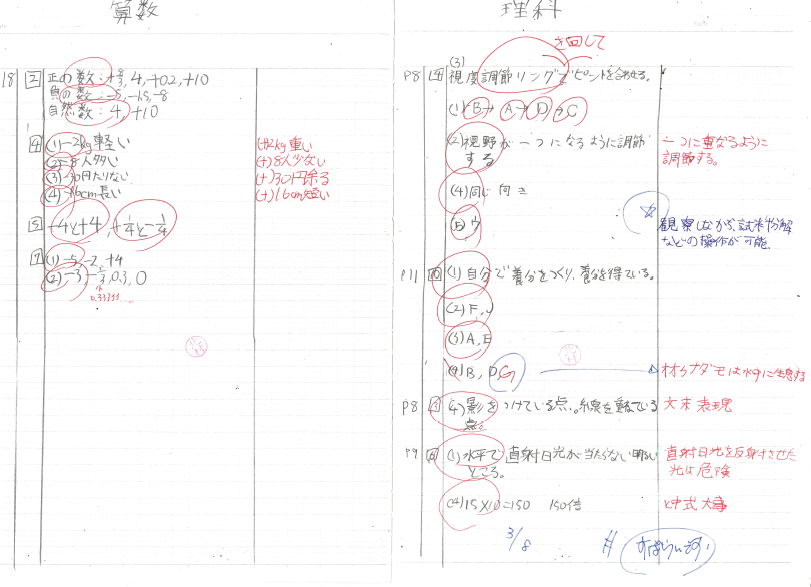 算数
18 2 正の数:+8/3, 4, +0.2, +10
負の数:-5, -1.5, -8
自然数:4, +10
4 (1)-2kg軽い (+)2kg重い
(2)-8人多い (+)8人少ない
(3)-30円たりない (+)30円余る
(4)-16cm長い (+)16cm短い
5 -4と+4, +1/4と-1/4
7 (1)-5, -2, +4
(2)-3, -1/3, 0.3, 0
0.33333……
理科
を回して
(3)
P8 4 視度調節リングでピントを合わせる。
(1)B→A→D→C
(2)視野が一つになるように調節 一つに重なるように
する 調節する。
(4)同じ向き
(5)ウ
☆ 観察しながら、試料分解
などの操作が可能。
P11 10 (1)自分で養分をつくり、養分を得ている。
(2)F, J
(3)A, E
(4)B, D, G → オオカナダモは水中に生息する
P8 (4)影をつけている点。線を重ねている 文末表現
点。
P9 6 (1)水平で直射日光が当たらない明るい 直射日光を反射させた
ところ。 光は危険
(4)15×10=150 150倍 と中式大事
3/8 すばらしいです!